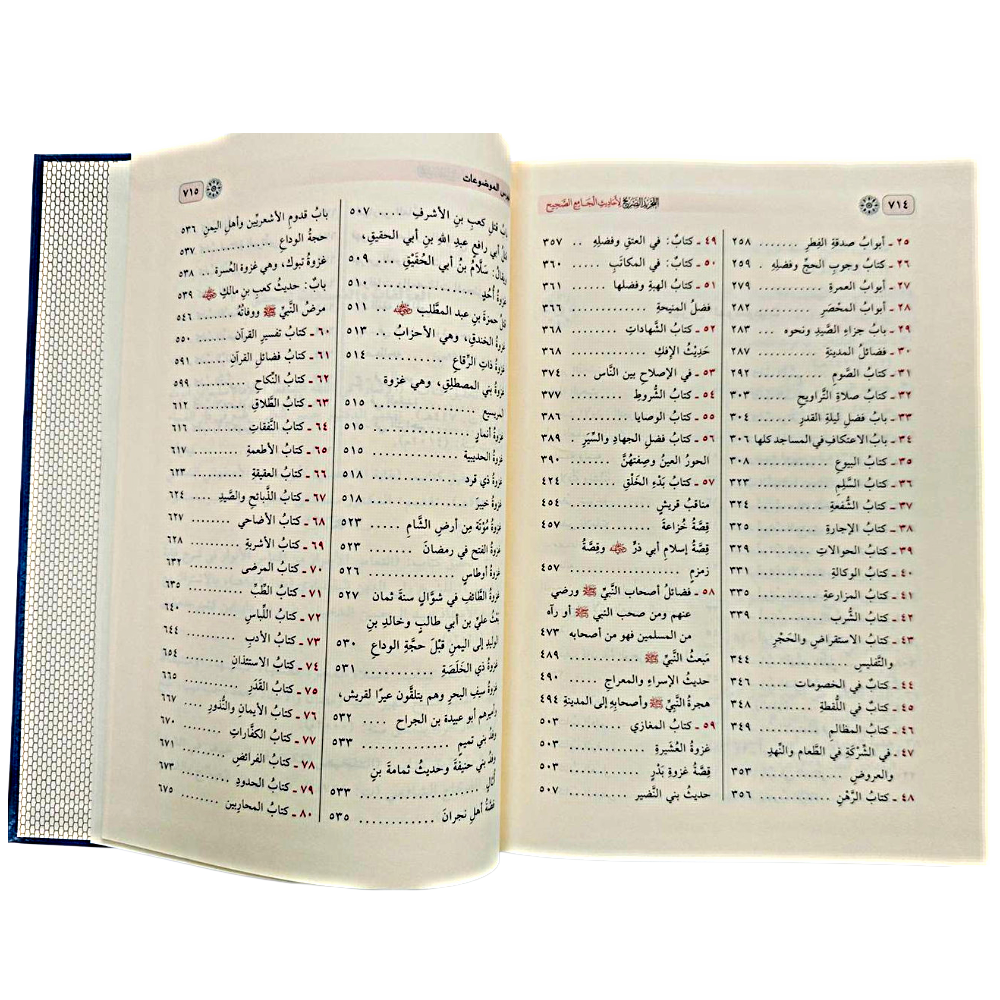 ٧١٤
التجريد الصريح لأحاديث الجامع الصحيح
٢٥ ـ أبوابُ صدقةِ الفِطرِ ........ ٢٥٨
٢٦ ـ كتابُ وجوبِ الحجِّ وفضلِهِ . ٢٥٩
٢٧ ـ أبوابُ العمرةِ ............ ٢٧٩
٢٨ ـ أبوابُ المحْصَرِ ........... ٢٨١
٢٩ ـ بابُ جزاءِ الصَّيدِ ونحوه ... ٢٨٣
٣٠ ـ فضائلُ المدينةِ ........... ٢٨٧
٣١ ـ كتابُ الصَّومِ ............ ٢٩٢
٣٢ ـ كتابُ صلاةِ التَّراويحِ ..... ٣٠٣
٣٣ ـ بابُ فضلِ ليلةِ القدرِ ..... ٣٠٤
٣٤ ـ بابُ الاعتكافِ في المساجد كلها ٣٠٦
٣٥ ـ كتابُ البيوعِ ............ ٣٠٨
٣٦ ـ كتابُ السَّلمِ ............ ٣٢٣
٣٧ ـ كتابُ الشُّفعةِ ........... ٣٢٤
٣٨ ـ كتابُ الإجارةِ ........... ٣٢٥
٣٩ ـ كتابُ الحوالاتِ ......... ٣٢٩
٤٠ ـ كتابُ الوكالةِ ........... ٣٣١
٤١ ـ كتابُ المزارعةِ .......... ٣٣٥
٤٢ ـ كتابُ الشُّرب ........... ٣٣٩
٤٣ ـ كتابُ الاستقراضِ والحَجْرِ
والتَّفليسِ ............... ٣٤٤
٤٤ ـ كتابٌ في الخصومات ...... ٣٤٦
٤٥ ـ كتابٌ في اللُّقطةِ ......... ٣٤٨
٤٦ ـ كتابُ المظالمِ ........... ٣٤٩
٤٧ ـ في الشَّرْكةِ في الطَّعام والنَّهدِ
والعروضِ ............... ٣٥٣
٤٨ ـ كتابُ الرَّهْنِ ............ ٣٥٦
٤٩ ـ كتابٌ: في العتقِ وفضلِهِ ... ٣٥٧
٥٠ ـ كتابٌ: في المكاتَبِ ....... ٣٦٠
٥١ ـ كتابُ الهبةِ وفضلها ....... ٣٦١
فضلُ المنيحةِ ............ ٣٦٦
٥٢ ـ كتابُ الشَّهاداتِ ......... ٣٦٨
حَدِيْثُ الإفكِ ........... ٣٦٨
٥٣ ـ في الإصلاحِ بين النَّاس .... ٣٧٤
٥٤ ـ كتابُ الشُّروطِ .......... ٣٧٧
٥٥ ـ كتابُ الوصايا ........... ٣٨٦
٥٦ ـ كتابُ فضلِ الجهادِ والسِّيَرِ .. ٣٨٩
الحورُ العينُ وصِفتهُنَّ ..... ٣٩٠
٥٧ ـ كتابُ بَدْءِ الخَلْقِ ......... ٤٢٤
مناقبُ قريشٍ ............ ٤٥٤
قِصَّةُ خُزاعةَ ............. ٤٥٧
قِصَّةُ إسلامِ أبي ذرٍّ ﵁ وقِصَّةُ
زمزمِ ................. ٤٥٧
٥٨ ـ فضائلُ أصحابِ النَّبيِّ ﷺ ورضي
عنهم ومن صحب النبي ﷺ أو رآه
من المسلمين فهو من أصحابه ٤٧٣
مَبعثُ النَّبيِّ ﷺ .......... ٤٨٩
حديثُ الإسراءِ والمعراجِ ... ٤٩٠
هجرةُ النَّبيِّ ﷺ وأصحابِهِ إلى المدينةِ ٤٩٤
٥٩ ـ كتابُ المغازي .......... ٥٠٣
غزوةُ العُشَيرةِ ........... ٥٠٣
قِصَّةُ غزوةِ بَدْرٍ .......... ٥٠٣
حديثُ بني النَّضير ........ ٥٠٧
فهرس الموضوعات
٧١٥
بابُ قتلِ كعبِ بنِ الأشرفِ .... ٥٠٧
قتلُ أبي رافعٍ عبدِ اللهِ بنِ أبي الحقيقِ،
ويقالُ: سَلَّامُ بنُ أبي الحُقَيْقِ ... ٥٠٩
غزوةُ أُحُدٍ ............... ٥١٠
قتلُ حمزةَ بنِ عبد المطَّلب ﵁ ... ٥١١
غزوةُ الخندقِ، وهي الأحزابُ .. ٥١٣
غزوةُ ذاتِ الرِّقاعِ ........... ٥١٤
غزوةُ بني المصطلِقِ، وهي غزوة
المريسيع ................ ٥١٥
غزوةُ أنمارٍ ............... ٥١٥
غزوةُ الحديبيةِ ............. ٥١٥
غزوةُ ذي قرد ............. ٥١٨
غزوةُ خيبرَ ............... ٥١٨
غزوةُ مُؤْتَةَ مِن أرضِ الشَّامِ ..... ٥٢٣
غزوةُ الفتحِ في رمضانَ ........ ٥٢٣
غزوةُ أوطاسٍ ............. ٥٢٦
غزوةُ الطَّائفِ في شوَّالٍ سنةَ ثمان ٥٢٧
بَعْثُ عليِّ بنِ أبي طالبٍ وخالدِ بنِ
الوليدِ إلى اليمنِ قَبْلَ حجَّةِ الوداعِ ٥٣٠
غزوةُ ذي الخَلَصَةِ ........... ٥٣١
غزوةُ سيفِ البحرِ وهم يتلقَّون عيرًا لقريش،
وأميرهم أبو عبيدة بن الجراح ... ٥٣٢
وفدُ بني تميم .............. ٥٣٣
وفدُ بني حنيفةَ وحديثُ ثمامةَ بنِ
أُثالٍ .................. ٥٣٣
قصَّةُ أهلِ نجرانَ ............ ٥٣٥
بابُ قدومِ الأشعريِّين وأهلِ اليمنِ ٥٣٦
حجةُ الوداعِ ............. ٥٣٧
غزوةُ تبوك، وهي غزوةُ العسرة .. ٥٣٨
بابٌ: حديثُ كعبِ بنِ مالكٍ ﵁ ٥٣٩
مرضُ النَّبيِّ ﷺ ووفاتُهُ ........ ٥٤٦
٦٠ ـ كتابُ تفسيرِ القرآن ....... ٥٥٠
٦١ ـ كتابُ فضائلِ القرآنِ ....... ٥٩١
٦٢ ـ كتابُ النِّكاحِ ........... ٥٩٩
٦٣ ـ كتابُ الطَّلاقِ .......... ٦١٢
٦٤ ـ كتابُ النَّفقاتِ .......... ٦١٦
٦٥ ـ كتابُ الأطعمةِ .......... ٦١٧
٦٦ ـ كتابُ العقيقةِ ........... ٦٢٣
٦٧ ـ كتابُ الذَّبائحِ والصَّيدِ .... ٦٢٤
٦٨ ـ كتابُ الأضاحي ......... ٦٢٧
٦٩ ـ كتابُ الأشربةِ .......... ٦٢٨
٧٠ ـ كتابُ المرضى .......... ٦٣٢
٧١ ـ كتابُ الطِّبِّ ........... ٦٣٥
٧٢ ـ كتابُ اللِّباسِ ........... ٦٤٠
٧٣ ـ كتابُ الأدبِ ........... ٦٤٤
٧٤ ـ كتابُ الاستئذانِ ........ ٦٥٤
٧٥ ـ كتابُ القَدَرِ ........... ٦٦٥
٧٦ ـ كتابُ الأيمانِ والنُّذورِ ..... ٦٦٧
٧٧ ـ كتابُ الكفَّاراتِ ........ ٦٧٠
٧٨ ـ كتابُ الفرائضِ ......... ٦٧١
٧٩ ـ كتابُ الحدودِ .......... ٦٧٣
٨٠ ـ كتابُ المحاربين ........ ٦٧٥